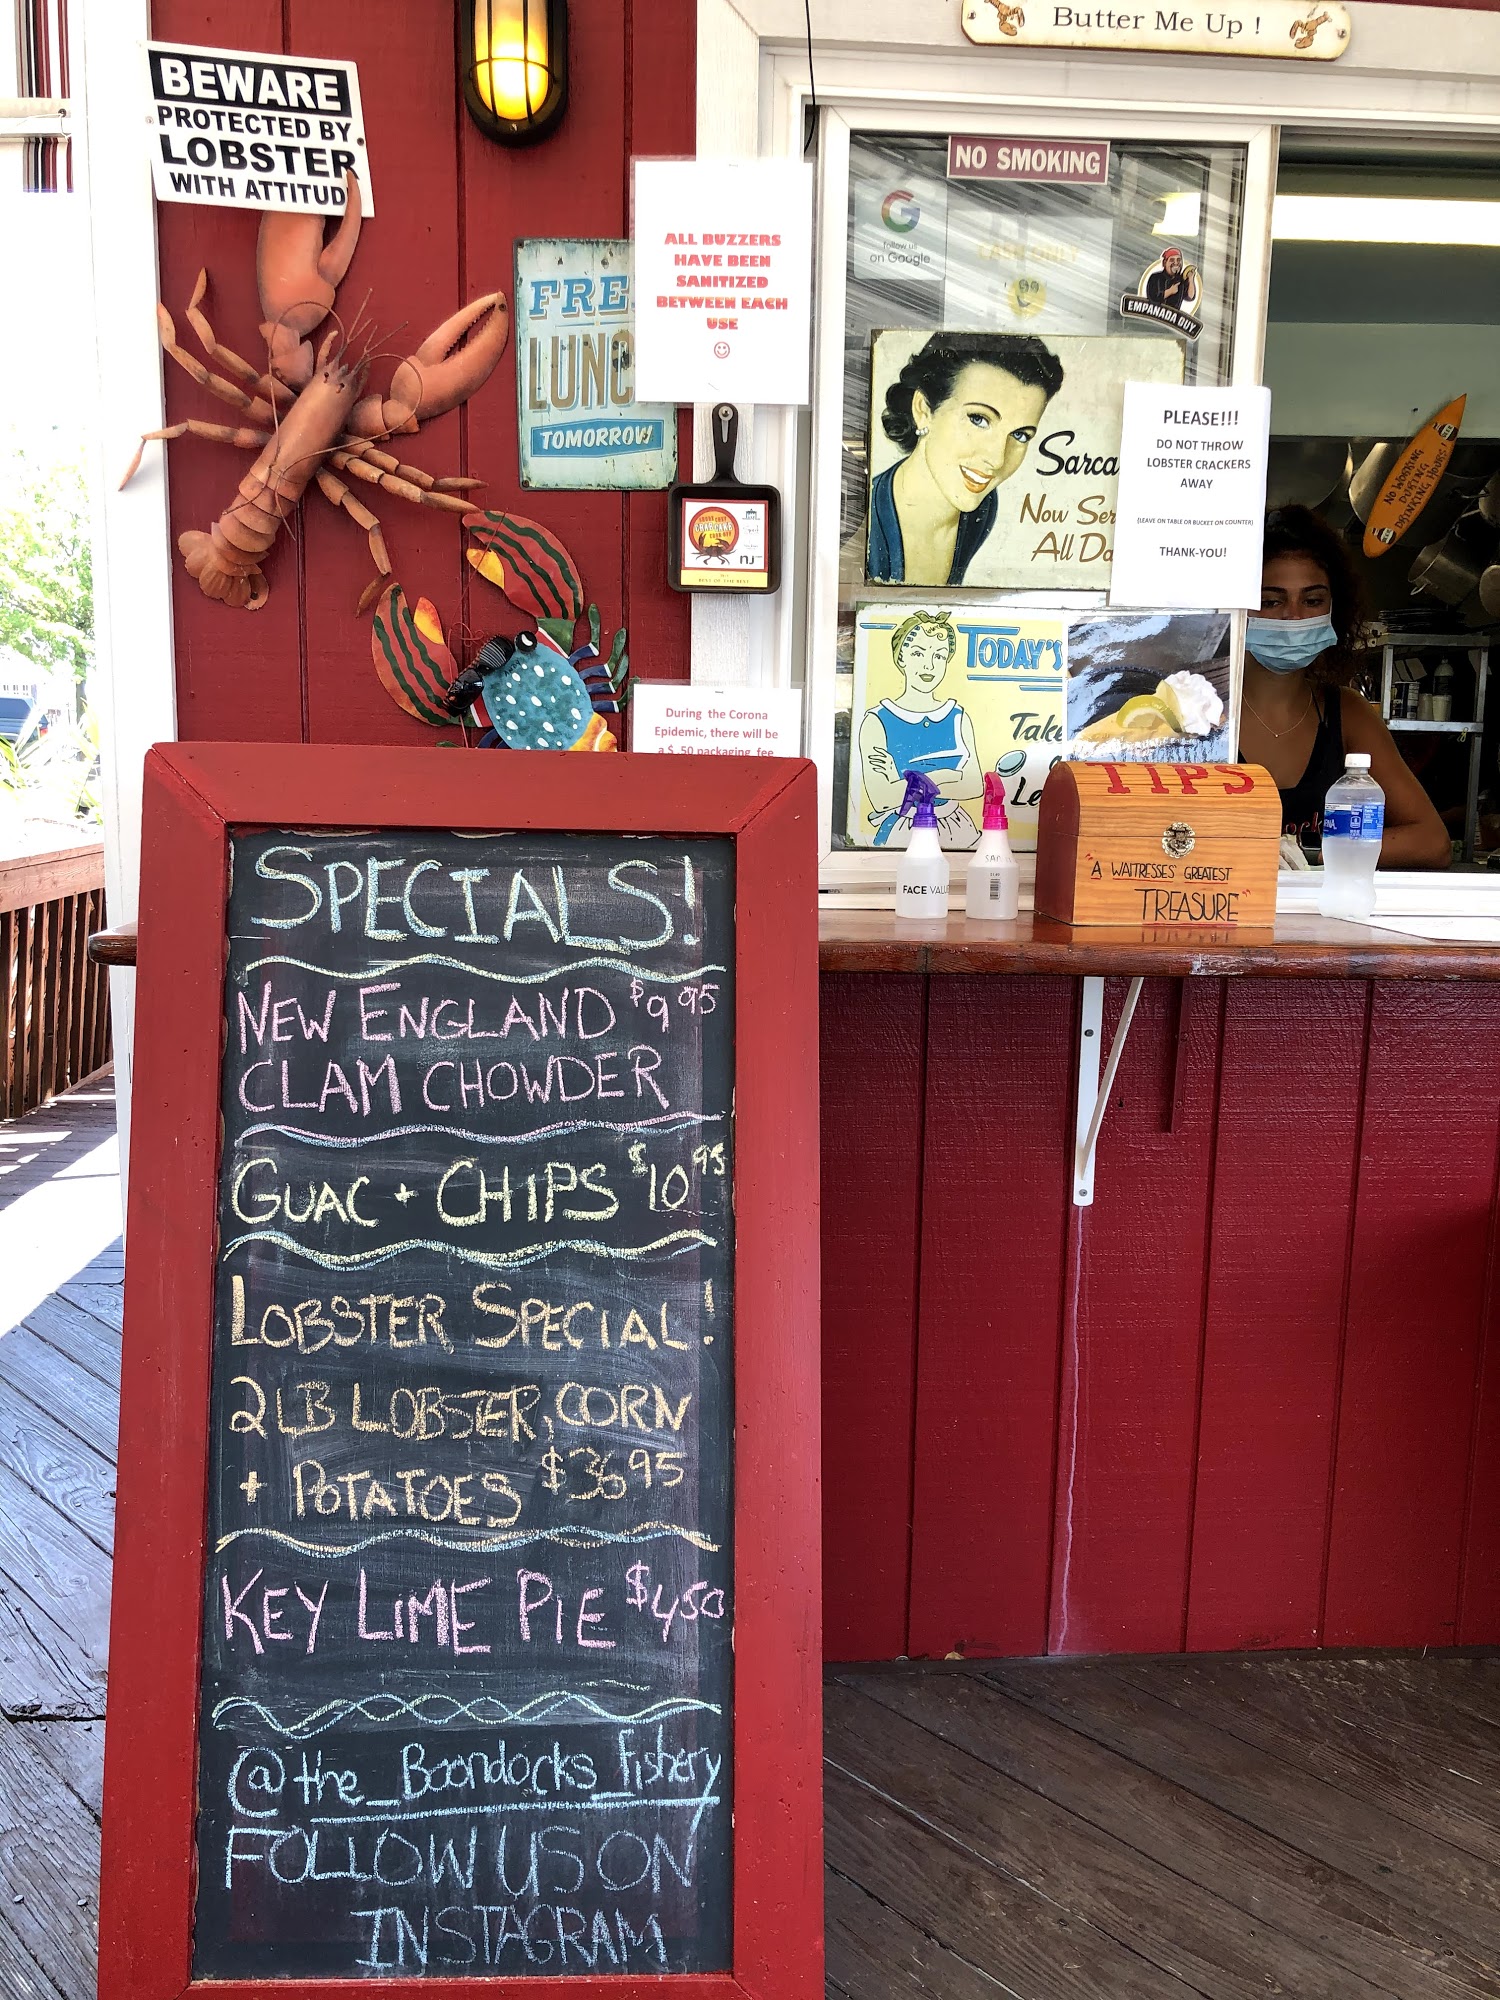 Butter Me Up !
BEWARE
PROTECTED BY
LOBSTER
WITH ATTITUD
NO SMOKING
G
follow us
on Google
CASH ONLY
EMPANADA GUY
ALL BUZZERS
HAVE BEEN
SANITIZED
BETWEEN EACH
USE
FRE
LUNC
TOMORROW
Sarca
Now Ser
All Da
PLEASE!!!
DO NOT THROW
LOBSTER CRACKERS
AWAY
(LEAVE ON TABLE OR BUCKET ON COUNTER)
THANK-YOU!
NO WORKING
DURING
DRINKING HOURS!
NJ
BEST OF THE BEST
TODAY'S
Take
Le
During the Corona
Epidemic, there will be
a $ .50 packaging fee
TIPS
"A WAITRESSES GREATEST
TREASURE"
FACE VALU
SPECIALS!
NEW ENGLAND $9.95
CLAM CHOWDER
GUAC + CHIPS $10.95
LOBSTER SPECIAL!
2LB LOBSTER, CORN
+ POTATOES $36.95
KEY LIME PIE $4.50
@the_Boondocks_fishery
FOLLOW US ON
INSTAGRAM